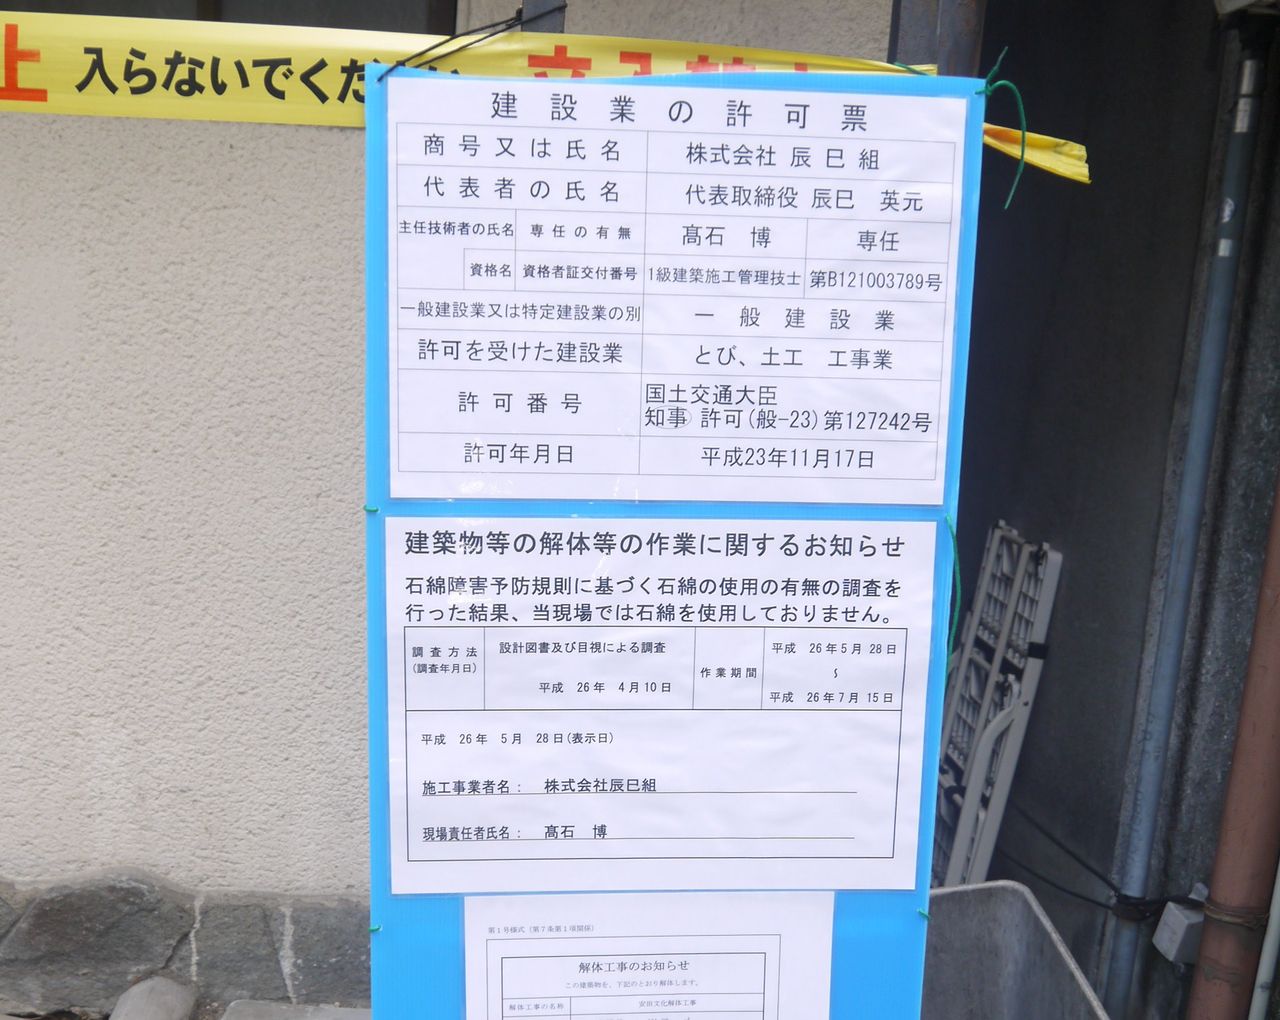 止 入らないでくだ
建設業の許可票
商号又は氏名 株式会社 辰巳組
代表者の氏名 代表取締役 辰巳 英元
主任技術者の氏名 専任の有無 髙石 博 専任
資格名 資格者証交付番号 1級建築施工管理技士 第B121003789号
一般建設業又は特定建設業の別 一般建設業
許可を受けた建設業 とび、土工 工事業
許可番号 国土交通大臣
知事 許可(般-23)第127242号
許可年月日 平成23年11月17日
建築物等の解体等の作業に関するお知らせ
石綿障害予防規則に基づく石綿の使用の有無の調査を
行った結果、当現場では石綿を使用しておりません。
調査方法 設計図書及び目視による調査 作業期間 平成 26年5月28日
(調査年月日) 平成 26年 4月10日 ~ 平成 26年7月15日
平成 26年 5月 28日(表示日)
施工事業者名： 株式会社辰巳組
現場責任者氏名： 髙石 博
第1号様式（第7条第1項関係）
解体工事のお知らせ
この建築物を、下記のとおり解体します。
解体工事の名称 安田文化解体工事